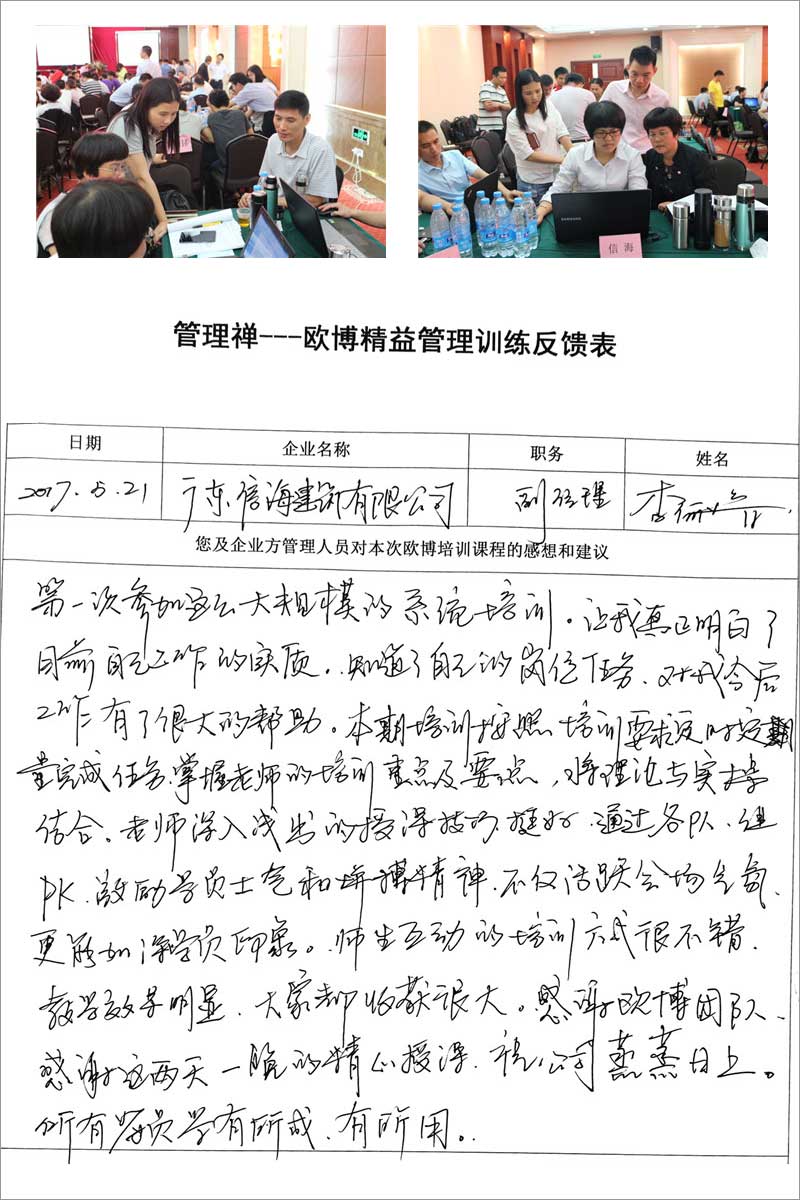 SAMSUNG
信海
管理禅---欧博精益管理训练反馈表
日期 企业名称 职务 姓名
2017.5.21 广东信海建筑有限公司 副经理 李
您及企业方管理人员对本次欧博培训课程的感想和建议
第一次参加这么大规模的系统培训。让我真正明白了
目前自己工作的实质。知道了自己的岗位任务、对我今后
工作有了很大的帮助。本期培训按照培训要求定时定
量完成任务.掌握老师的培训重点及要点,将理论与实操
结合。老师深入浅出的授课技巧挺好.通过各队、组
PK.激励学员士气和拼搏精神.不仅活跃会场气氛.
更能加深学员印象。师生互动的培训方式很不错.
教学效果明显.大家都收获很大。感谢欧博团队、
感谢这两天一晚的精心授课.祝公司蒸蒸日上。
所有学员学有所成.有所用。